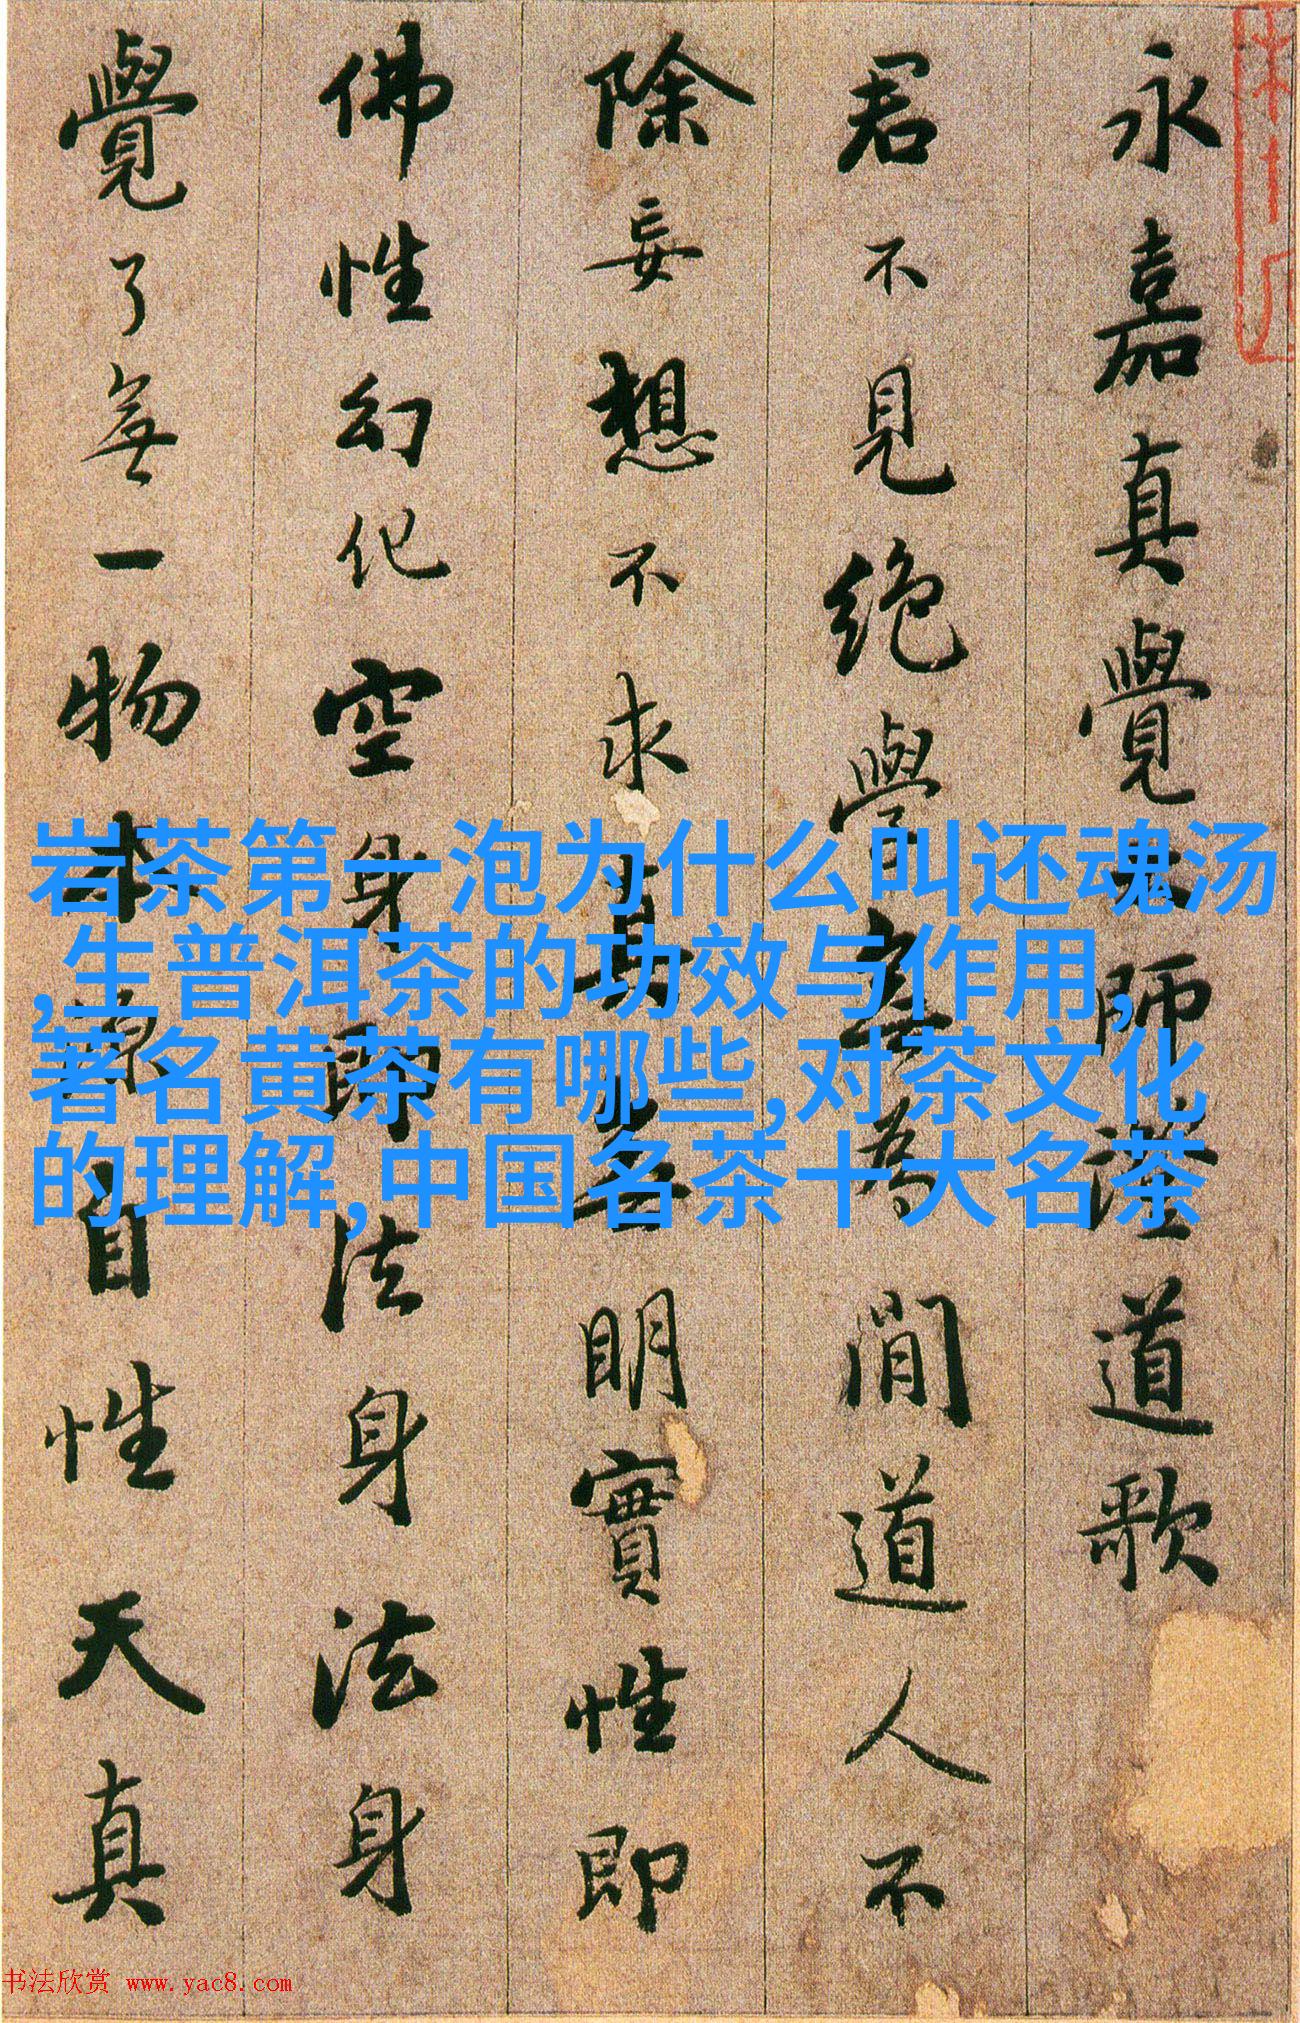 永嘉真覺大師證道歌
君不見絕學無為閒道人不
除妄想不求真無明實性即
佛性幻化空身即法身法身
覺了無一物本源自性天真
岩茶第一泡为什么叫还魂汤
,生普洱茶的功效与作用,
著名黄茶有哪些,对茶文化
的理解,中国名茶十大名茶
书法欣赏 www.yac8.com